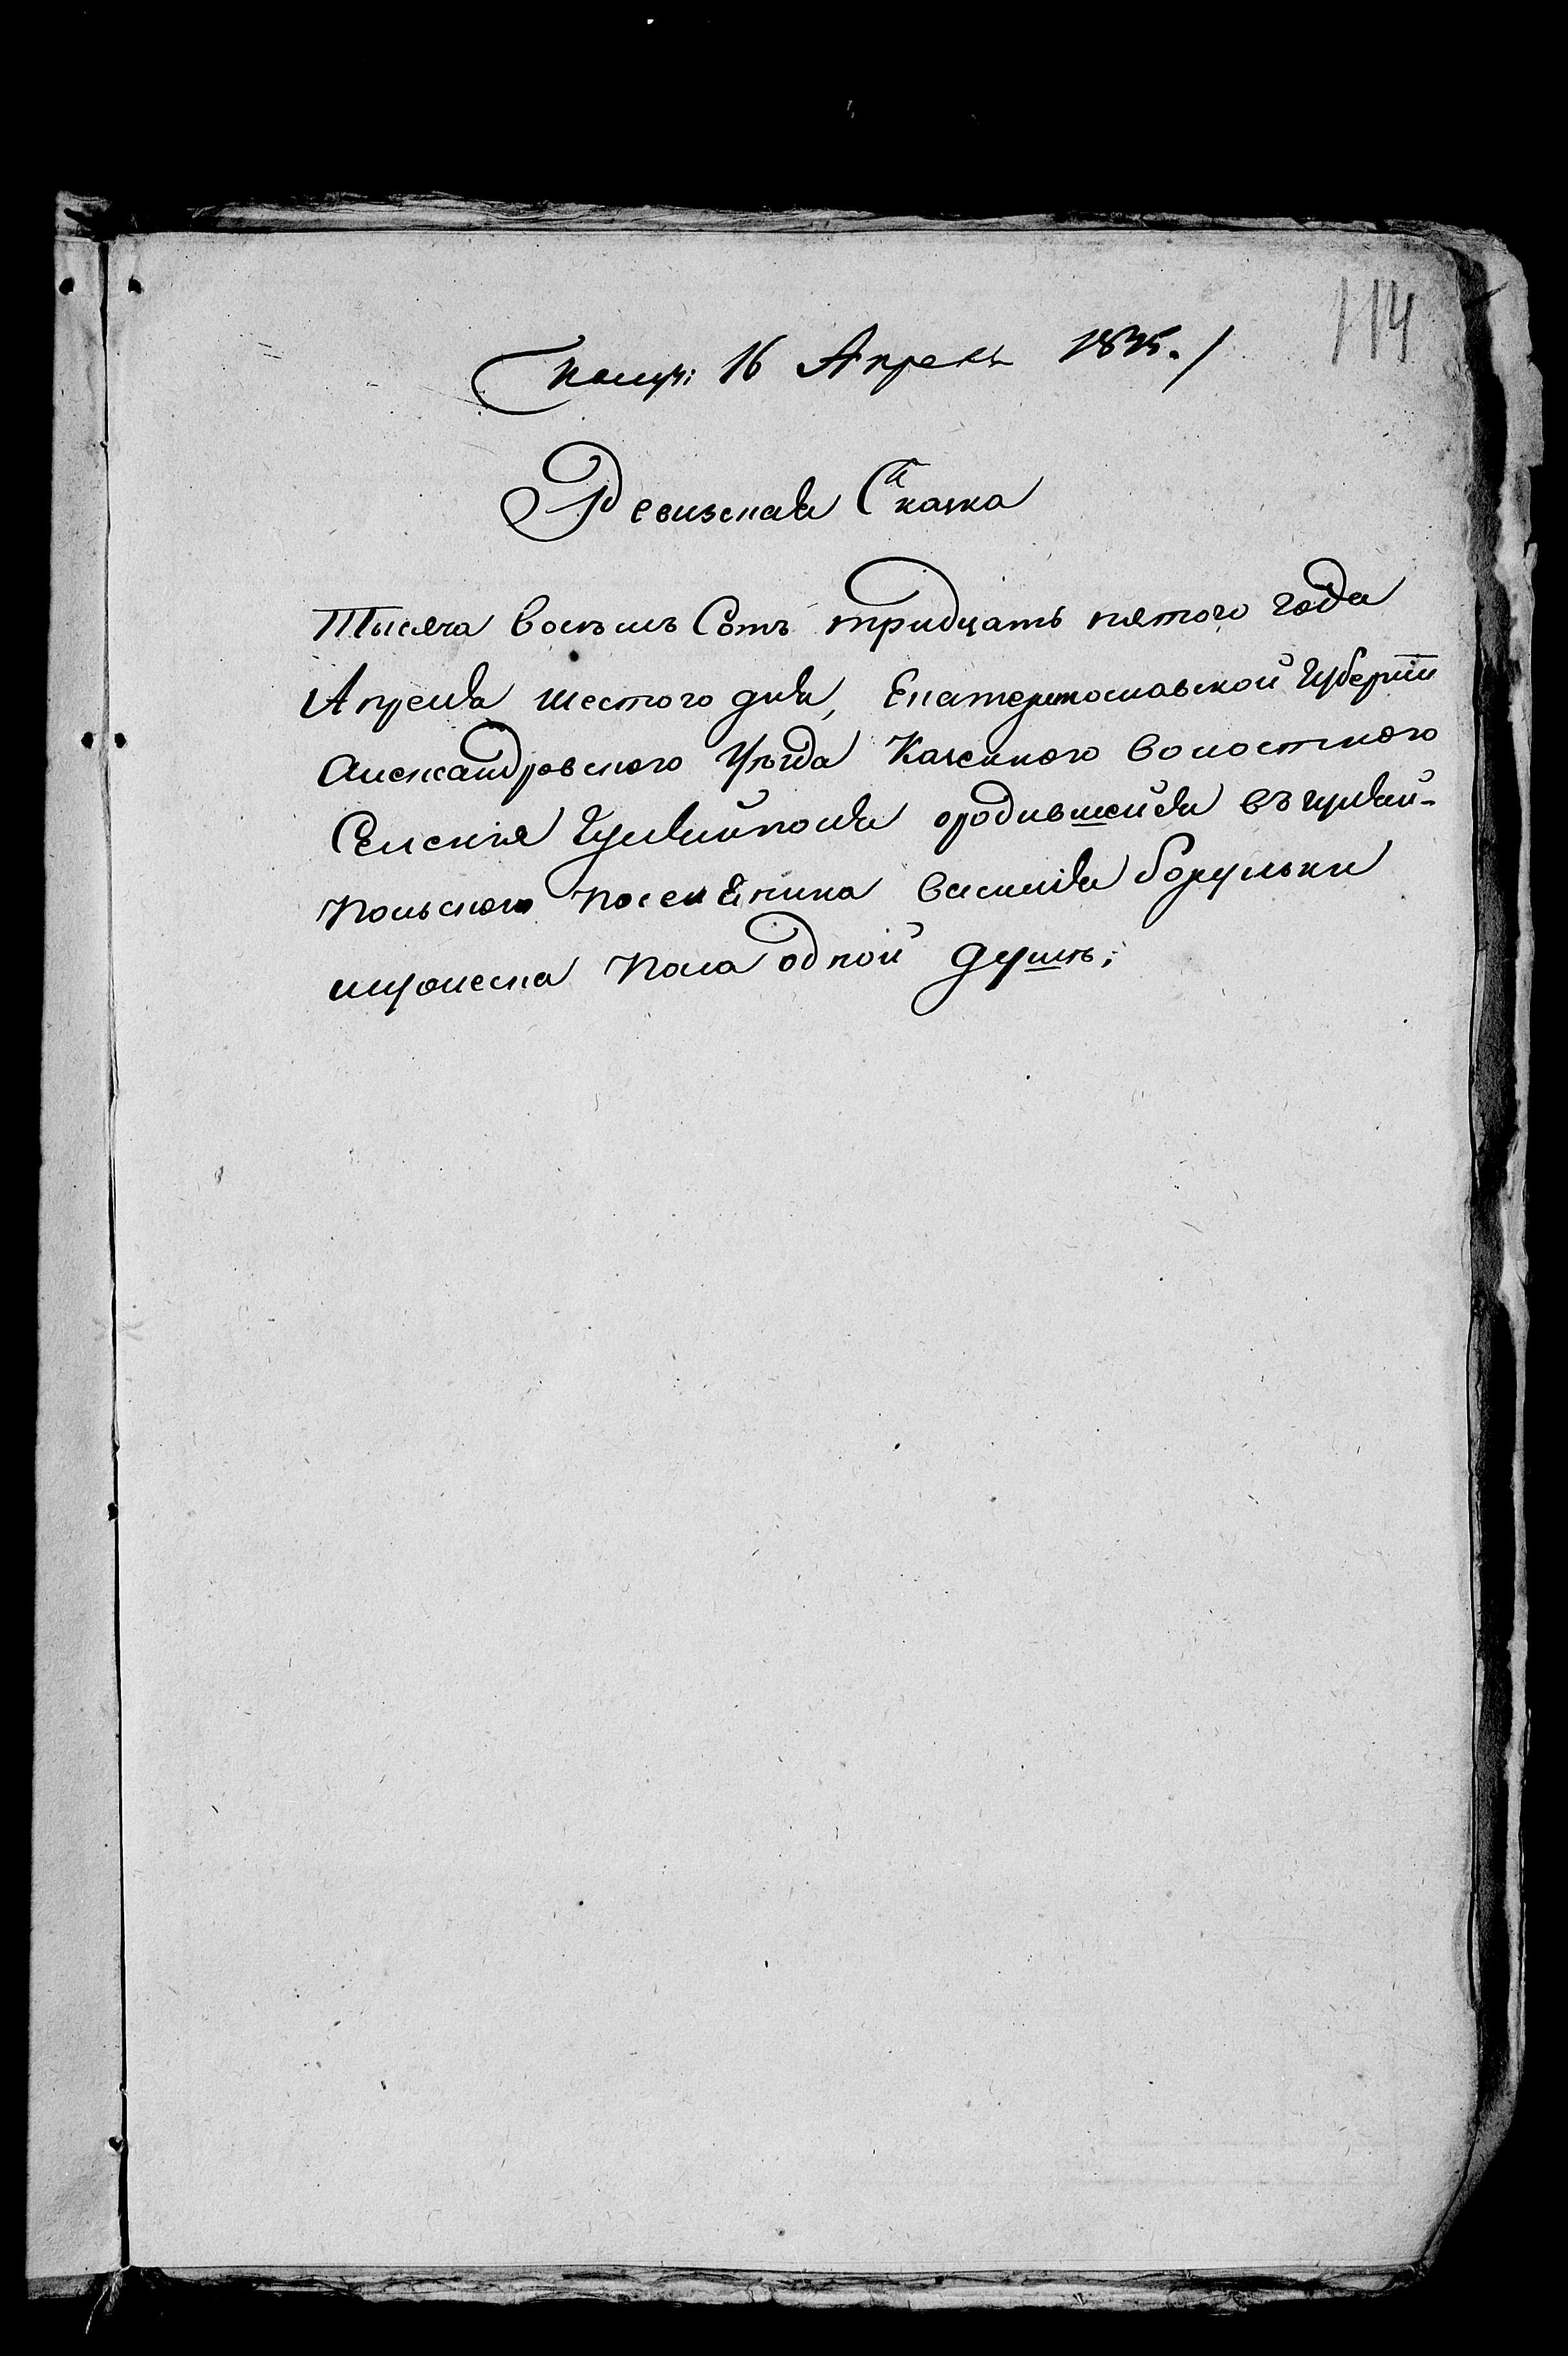 114
Получ: 16 Апреля 1835.
Ревизская Сказка
Тысяча восъмъ Сотъ тридцать пятого года
Апреля шестого дня, Екатеринославской Губерніи
Александровского Уѣзда Казенного волостного
Селенія Гуляйполяородившейся въ гуляй-
польского поселенина василія борульки
мужеска пола одной душѣ;